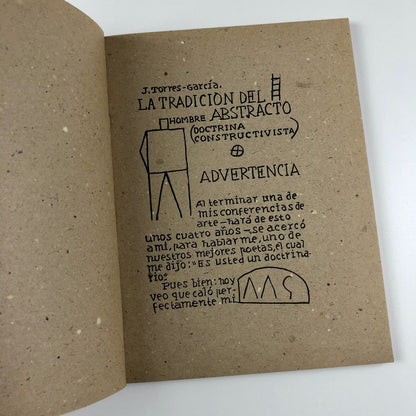 J. Torres-García.
LA TRADICIÓN DEL
HOMBRE ABSTRACTO
(DOCTRINA
CONSTRUCTIVISTA)
ADVERTENCIA
Al terminar una de
mis conferencias de
arte – hará de esto
unos cuatro años – se acercó
a mi, para hablarme, uno de
nuestros mejores poetas, el cual
me dijo: "Es usted un doctrina-
rio".
Pues bien: hoy
veo que caló per-
fectamente mi
AAS